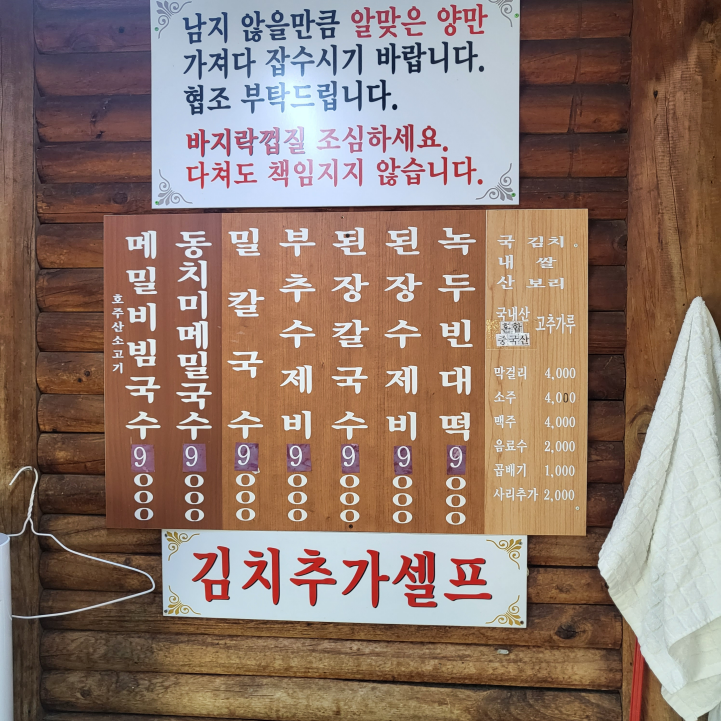 남지 않을만큼 알맞은 양만
가져다 잡수시기 바랍니다.
협조 부탁드립니다.
바지락껍질 조심하세요.
다쳐도 책임지지 않습니다.
메밀비빔국수 9000
호주산소고기
동치미메밀국수 9000
밀칼국수 9000
부추수제비 9000
된장칼국수 9000
된장수제비 9000
녹두빈대떡 9000
국내산 김치。 쌀 보리
국내산 혼합 중국산 고추가루
막걸리 4,000
소주 4,000
맥주 4,000
음료수 2,000
곱배기 1,000
사리추가 2,000
김치추가셀프